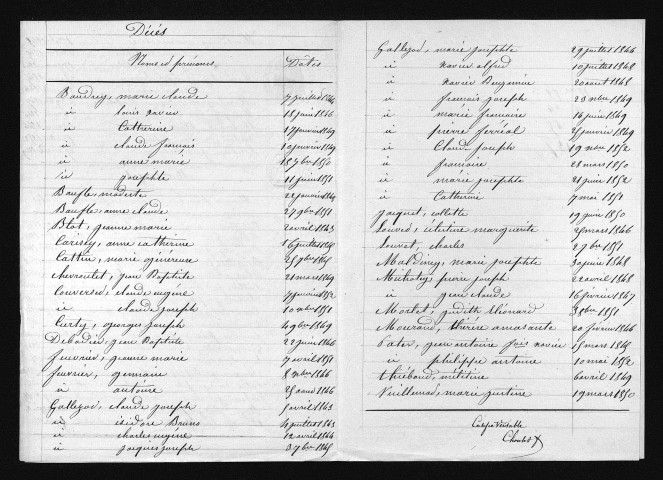 Décés
Noms et prénoms Dates
Baudrey, marie claude 7 juillet 1846
id louis xavier 18 juin 1846
id Catherine 17 janvier 1849
id claude francois 10 janvier 1849
id anne marie 18 7bre 1850
id josephte 11 juin 1851
Baufle, modeste
Baufle, anne claude 27 9bre 1851
Blot, jeanne marie 2 avril 1843
Carisey, anne catherine 16 juillet
Cattin, marie généreuse 25 9bre 1845
Chevroulet, jean Baptiste 21 mars 1849
Couversed, claude eugéne 7 janvier 1852
id claude joseph 10 1851
Curty, georges joseph 4 9bre 1849
Debadier, jean Baptiste 22 juin 1846
Feuvrier, jeanne marie 7 avril 1851
Feuvrier, germain 8 1846
id antoine 25 aout 1846
Gallezot, claude joseph 5 avril 1843
id isidore Bruno 4 juillet 1843
id charles eugéne 12 avril 1844
id jacques joseph 3 7bre 1845
Gallezot, marie josephte 29 juillet 1846
id xavier alfred 10 juillet 1848
id xavier Benjamin 20 aout 1848
id francois joseph 23 1849
id marie francoise 16 juin 1849
id pierre ferréol 25 janvier 1849
id Claude joseph 19 1852
id francoise 28 mars 1850
id marie josephte 21 juin 1852
id Catherine 7 mai 1851
jacquet, collette 19 1850
Louvet, célestine marguerite 25 mars 1846
Louvat, charles 27 9bre 1851
Maldiney, marie josephte 30 juin 1848
Michotey, pierre joseph 22 avril 1848
id jean claude 16 février 1847
Mortet, judith léonard 1851
Mourand, thérèse amarante 20 février 1846
Pater, jean antoine fois xavier 15 mars 1845
id philippe antoine 10 mai 1852
Thiébaud, mélitine 6 avril 1849
Vuillemot, marie justine 19 mars 1850
Copie Véritable